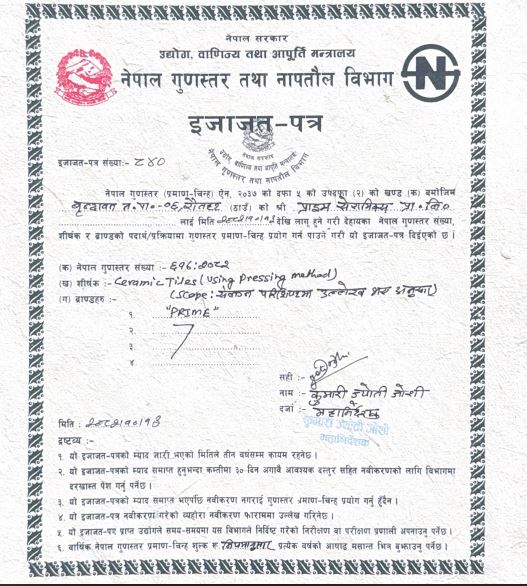 नेपाल सरकार
उद्योग, वाणिज्य तथा आपूर्ति मन्त्रालय
नेपाल गुणस्तर तथा नापतौल विभाग
इजाजत-पत्र
इजाजत-पत्र संख्या:- ८४०
नेपाल गुणस्तर (प्रमाण-चिन्ह) ऐन, २०३७ को दफा ५ को उपदफा (२) को खण्ड (क) बमोजिम
बृन्दावन न.पा.-०६, रौतहट (ठाउँ) को श्री प्राइम सेरामिक्स प्रा.लि.
लाई मिति २०८२।१०।१३ देखि लागु हुने गरी देहायका नेपाल गुणस्तर संख्या,
शीर्षक र ब्राण्डको पदार्थ/प्रक्रियामा गुणस्तर प्रमाण-चिन्ह प्रयोग गर्न पाउने गरी यो इजाजत-पत्र दिईएको छ ।
(क) नेपाल गुणस्तर संख्या :- ६१६:२०८२
(ख) शीर्षक :- Ceramic Tiles (Using Pressing method)
(Scope: संलग्न परिशिष्टमा उल्लेख भए अनुसार)
(ग) ब्राण्डहरु :-
१. "PRIME"
२.
३.
४.
सही :-
नाम :- कुमारी ज्योती जोशी
दर्जा :- महानिर्देशक
कुमारी ज्योती जोशी
महानिर्देशक
मिति : २०८२।१०।१३
द्रष्टव्य :-
१. यो इजाजत-पत्रको म्याद जारी भएको मितिले तीन वर्षसम्म कायम रहनेछ ।
२. यो इजाजत-पत्रको म्याद समाप्त हुनुभन्दा कम्तीमा ३० दिन अगावै आवश्यक दस्तुर सहित नवीकरणको लागि विभागमा
दरखास्त पेश गर्नु पर्नेछ ।
३. यो इजाजत-पत्रको म्याद समाप्त भएपछि नवीकरण नगराई गुणस्तर प्रमाण-चिन्ह प्रयोग गर्नु हुँदैन ।
४. यो इजाजत-पत्र नवीकरण गरेको व्यहोरा नवीकरण फाराममा उल्लेख गरिनेछ ।
५. यो इजाजत-पत्र प्राप्त उद्योगले समय-समयमा यस विभागले निर्दिष्ट गरेको निरीक्षण वा परीक्षण प्रणाली अपनाउनु पर्नेछ ।
६. वार्षिक नेपाल गुणस्तर प्रमाण-चिन्ह शुल्क रू. नियमानुसार प्रत्येक वर्षको आषाढ मसान्त भित्र बुझाउनु पर्नेछ ।